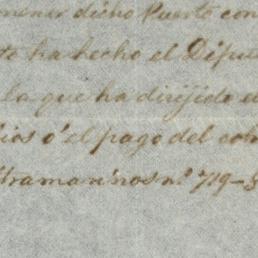 dicho Puerto con
ha hecho el Diput
la que ha dirijido e
ios ó el pago del cob
ltramarinos nº 719-8